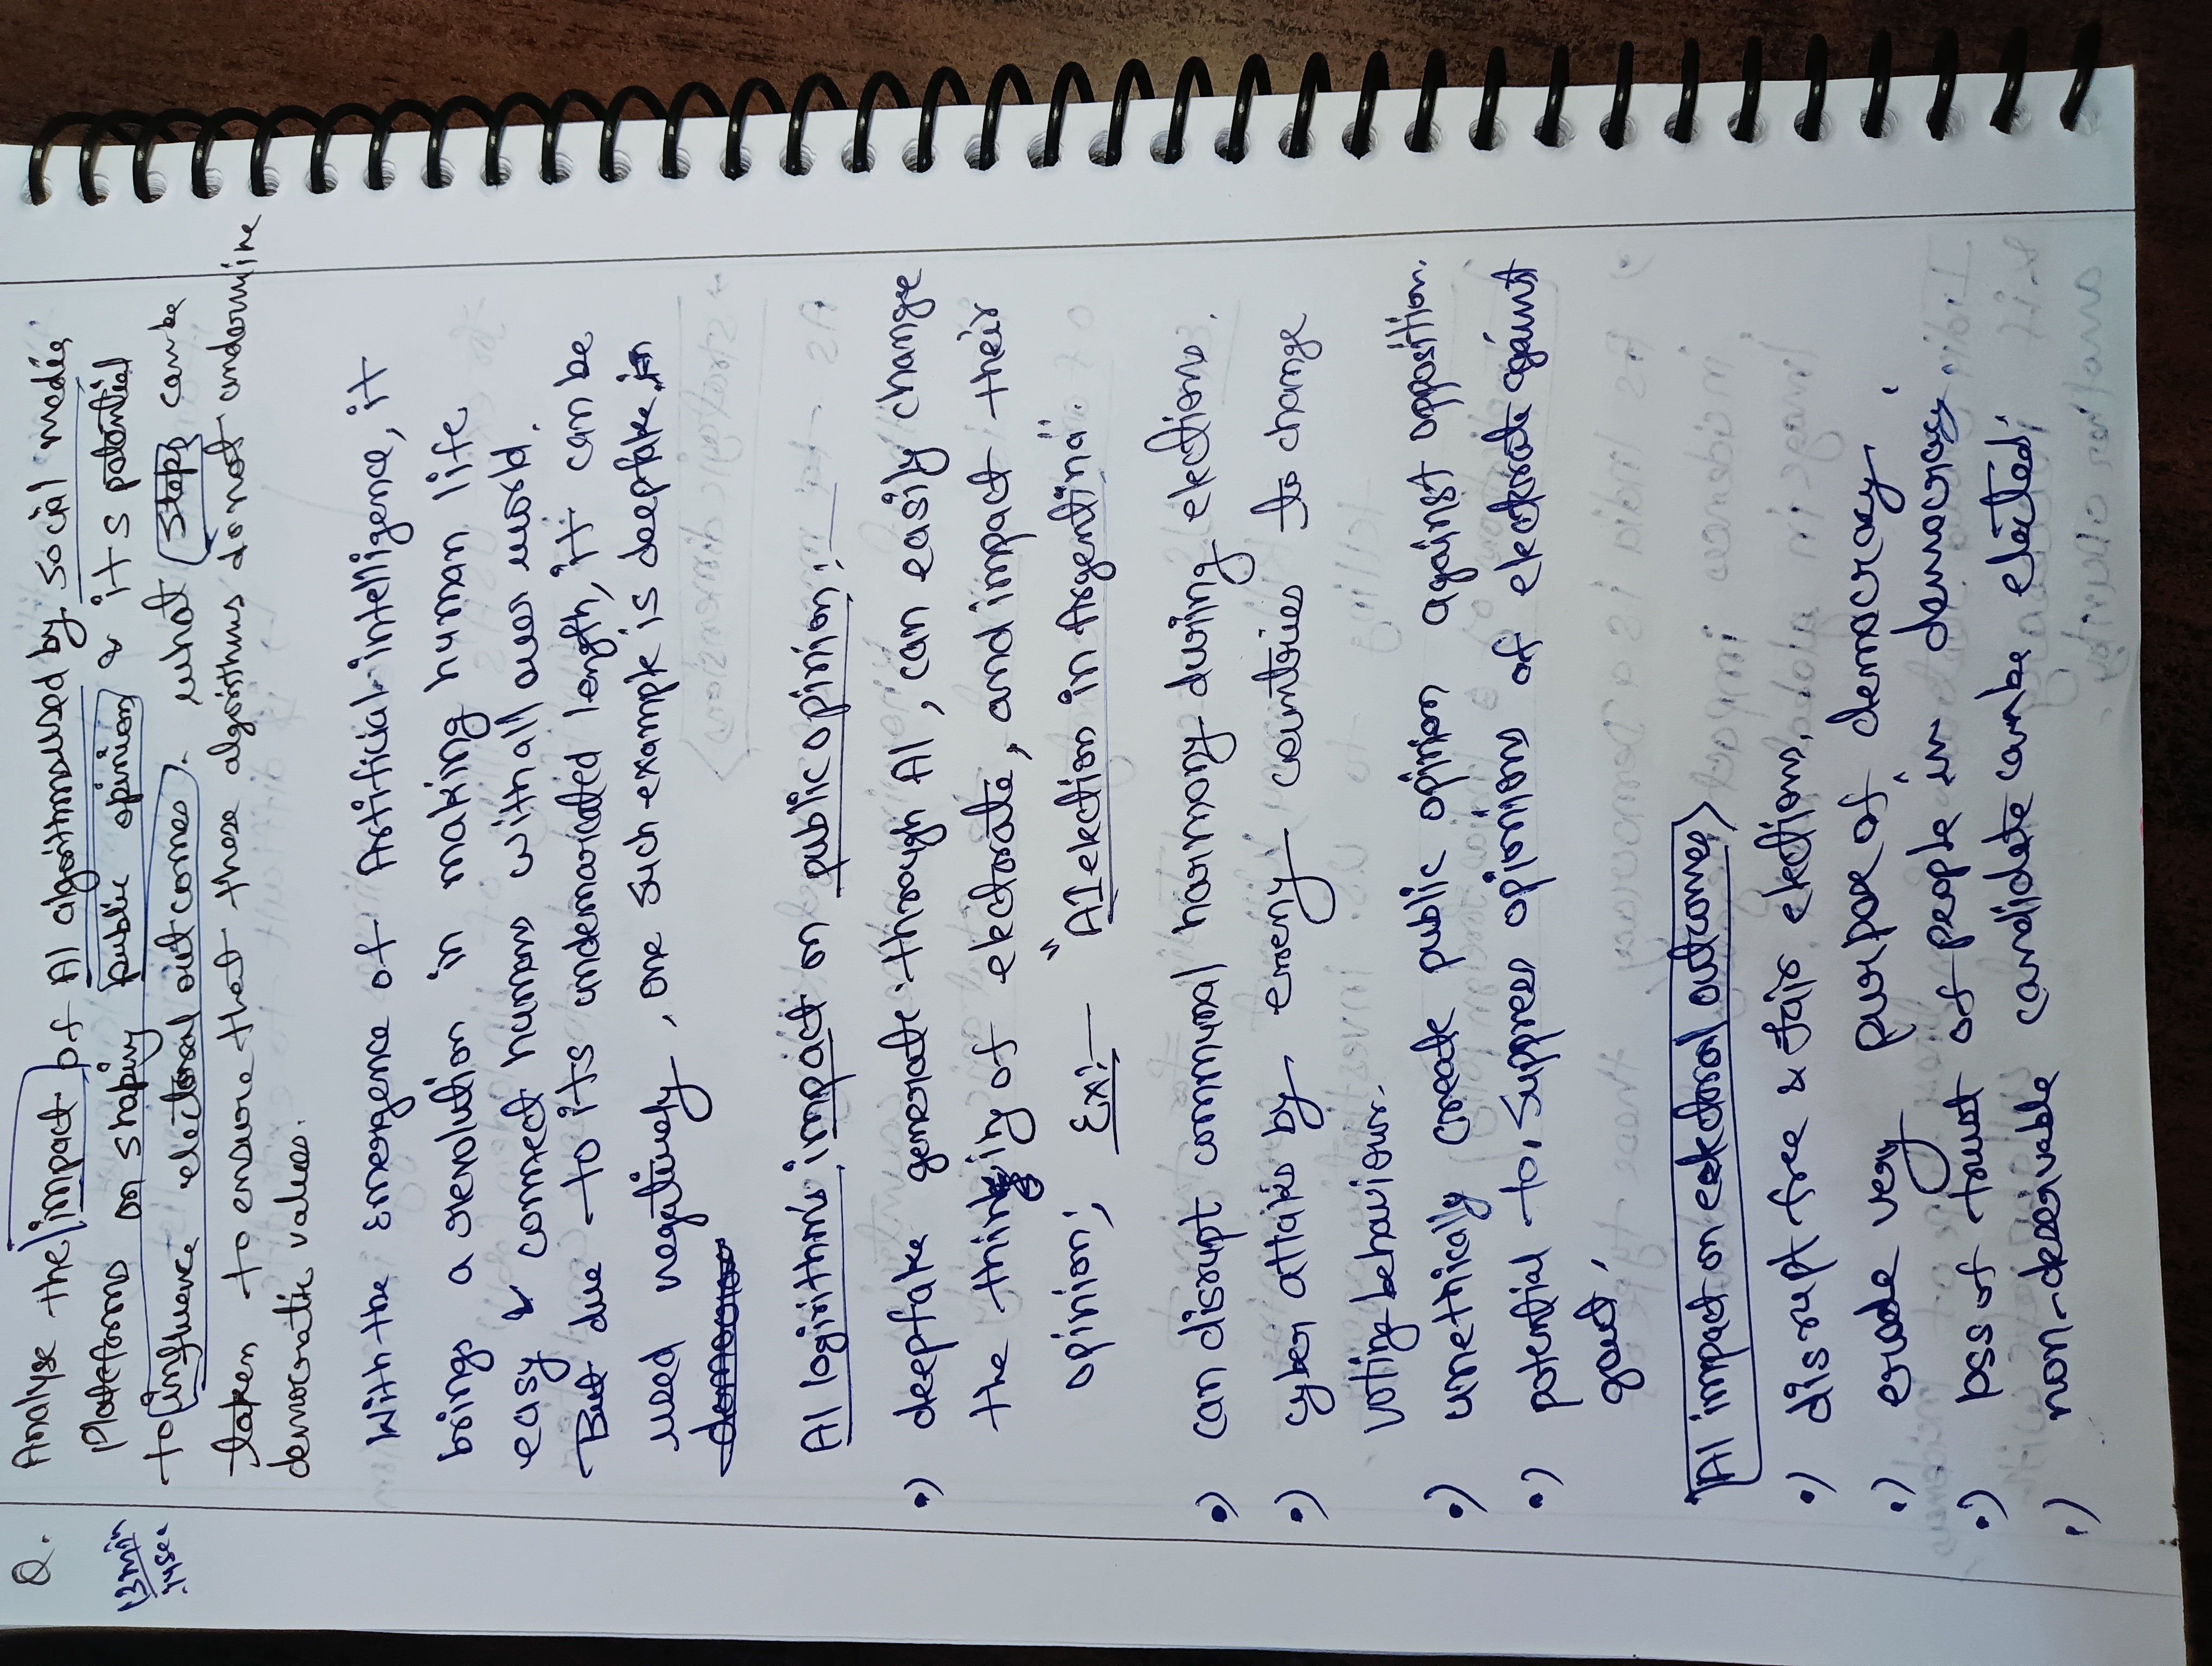 Q. Analyse the impact of AI algorithms used by social media
13min 14sec
Platforms on shaping public opinion & its potential
to influence electoral outcomes. what steps can be
taken to ensure that these algorithms do not undermine
democratic values.
With the emergence of Artificial intelligence, it
brings a revolution in making human life
easy & connect humans with all over world.
But due to its undemaricated length, it can be
used negatively, one such example is deepfake in
AI logirithms impact on public opinion:
•) deepfake generate through AI, can easily change
the thinking of electorate, and impact their
opinion; Ex:- "AI election in Argentina".
•) can disrupt communal harmony during elections.
•) cyber attacks by enemy countries to change
voting behaviour.
•) unethically create public opinion against opposition.
•) potential to, suppress opinions of electorate against
govt.
AI impact on ecktoral outcomes
•) disrupt free & fair elections.
•) erode very purpose of democracy.
•) loss of trust of people in democracy.
•) non-desirvable candidate can be elected;